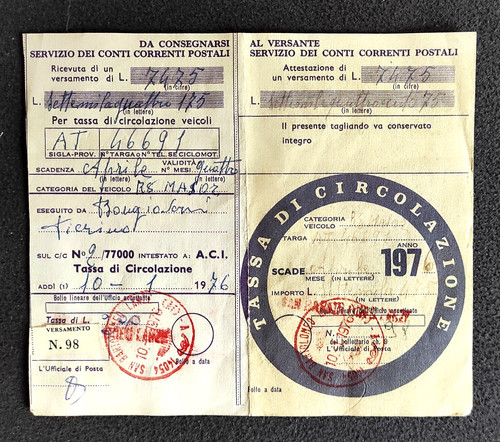 DA CONSEGNARSI
SERVIZIO DEI CONTI CORRENTI POSTALI
Ricevuta di un
versamento di L. 7475
(in cifre)
L. settemilaquattro 175
(in lettere)
Per tassa di circolazione veicoli
AT 46691
SIGLA-PROV. N° TARGA o N° TEL. SE CICLOMOT.
SCADENZA Aprile VALIDITÀ N° MESI quattro
(in lettere) (in lettere)
CATEGORIA DEL VEICOLO R8 MAJOR
ESEGUITO da Bongioanni
Pierino
SUL C/C N° 2/77000 INTESTATO A: A.C.I.
Tassa di Circolazione
ADDÌ (1) 10 - 1 1976
Bollo lineare dell'Ufficio accettante
Tassa di L.
VERSAMENTO
N. 98
Bollo a data
L'Ufficiale di Posta
AL VERSANTE
SERVIZIO DEI CONTI CORRENTI POSTALI
Attestazione di
un versamento di L. 7475
(in cifre)
L.
(in lettere)
Il presente tagliando va conservato
integro
TASSA DI CIRCOLAZIONE
CATEGORIA
VEICOLO
TARGA
ANNO
1976
SCADE
MESE (IN LETTERE)
IMPORTO L.
(IN LETTERE)
SAN DAMIANO
del bollettario ch. 9
L'Ufficiale di Posta
Bollo a data